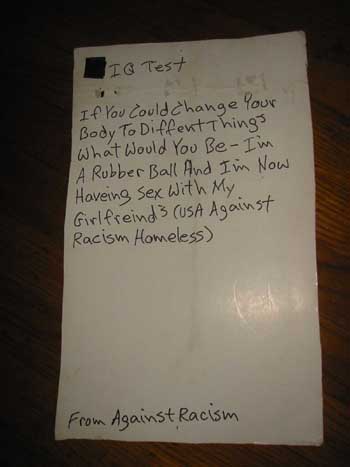 IQ Test
If You Could Change Your
Body To Diffent Things
What Would You Be - I'm
A Rubber Ball And I'm Now
Haveing Sex With My
Girlfreind³ (USA Against
Racism Homeless)
From Against Racism